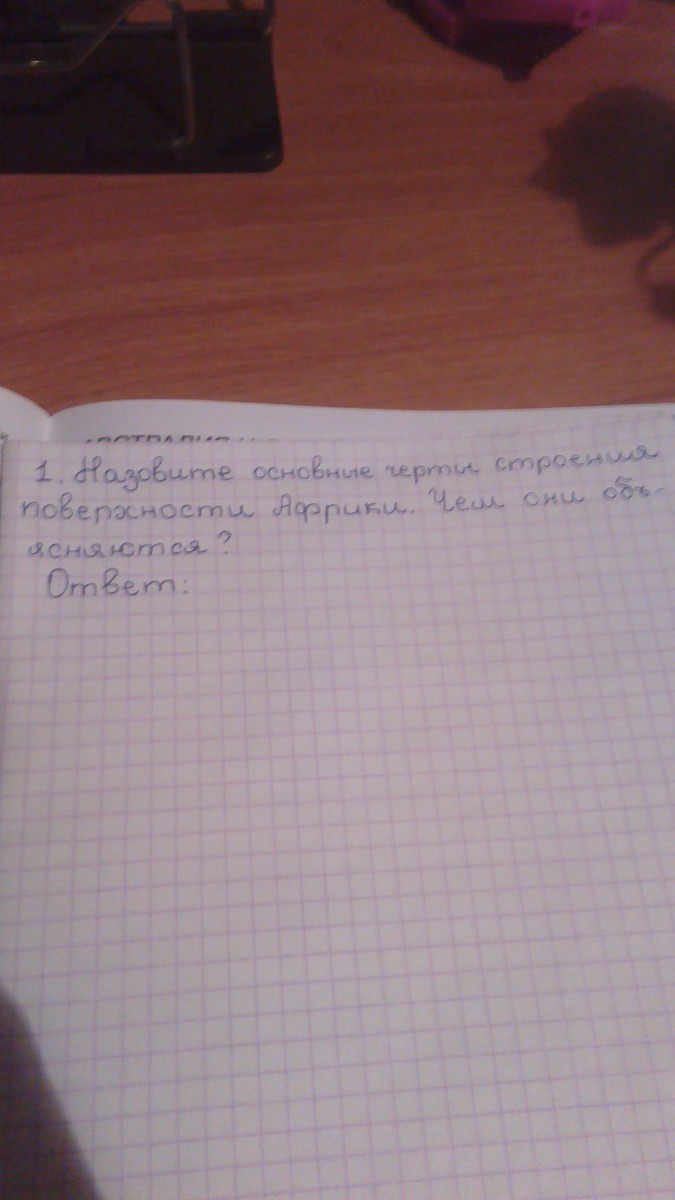 1. Назовите основные черты строения
поверхности Африки. Чем они объ-
ясняются?
Ответ: